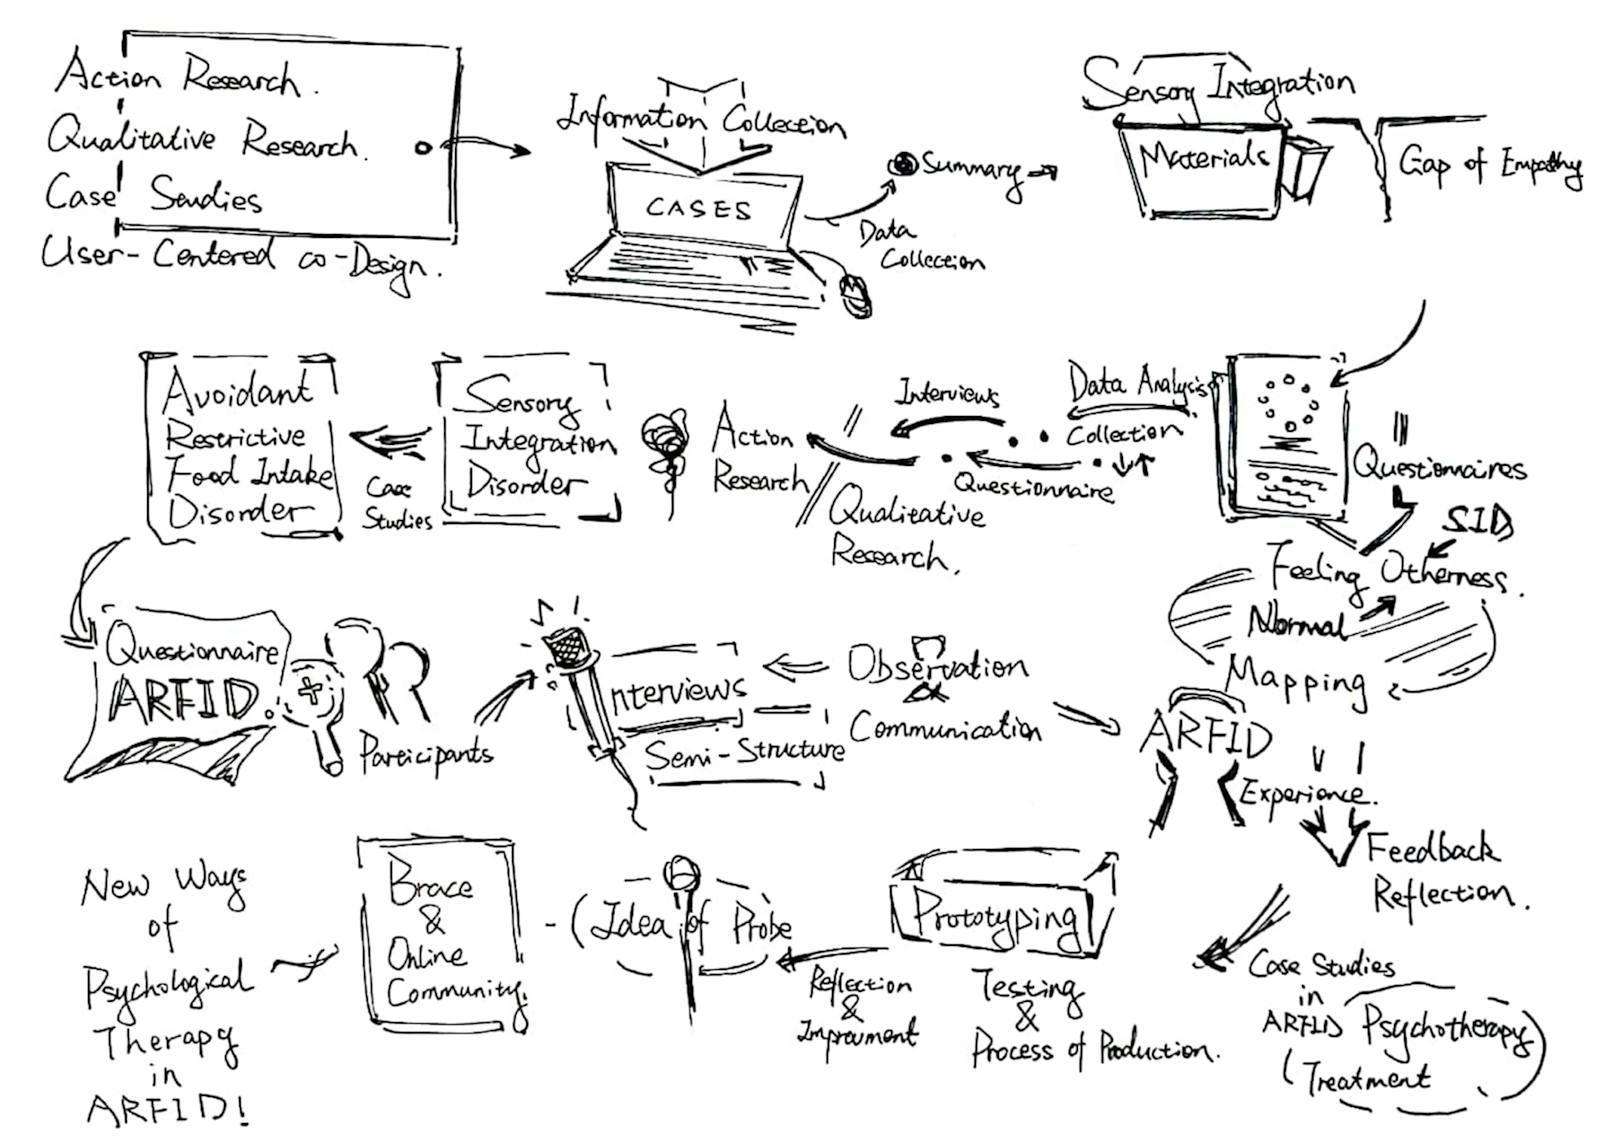 Action Research.
Qualitative Research.
Case Sendies
User-Centered co-Design.
Information Collection
CASES
Summary
Data
Collection
Sensory Integration
Materials
Gap of Empathy
Questionnaires
SID
Feeling Otherness.
Normal
Mapping
Data Analysis
Collection
Interviews
Questionnaire
Qualitative
Research.
Action
Research
Sensory
Integration
Disorder
Case
Studies
Avoidant
Restrictive
Food Intake
Disorder
Questionnaire
ARFID.
Participants
Interviews
Semi-Structure
Observation
&
Communication
ARFID
Experience.
Feedback
Reflection.
Case Studies
in
ARFID Psychotherapy
Treatment
Prototyping
Testing
&
Process of Production.
Reflection
&
Improvment
(Idea of Probe
Brace
&
Online
Community.
New Ways
of
Psychological
Therapy
in
ARFID!